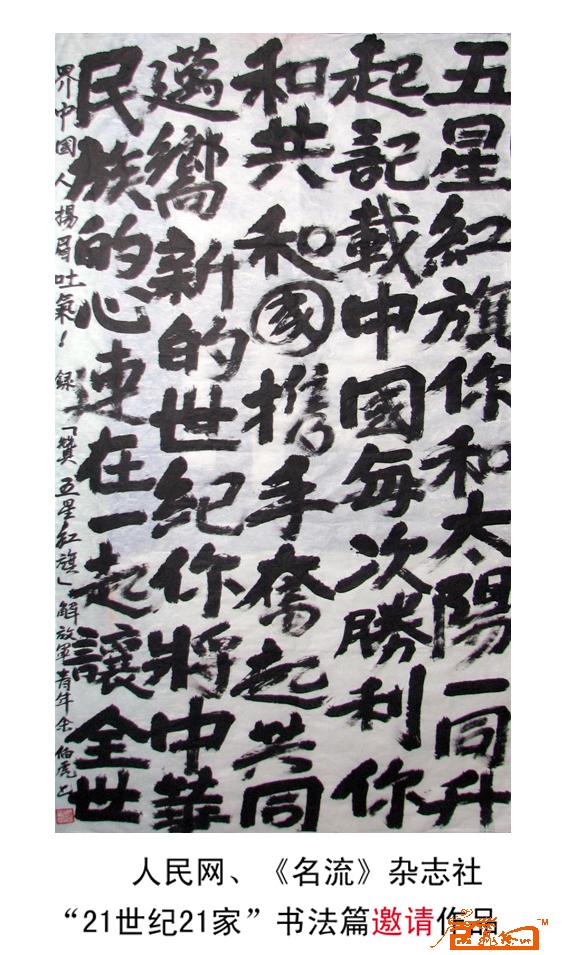 五星紅旗你和太陽一同升
起記載中國每次勝利你
和共和國携手奮起共同
邁嚮新的世紀你將中華
民族的心連在一起讓全世
界中國人揚眉吐氣！ 録「贊五星紅旗」解放軍青年 伯虎
人民网、《名流》杂志社
“21世纪21家”书法篇邀请作品
TM